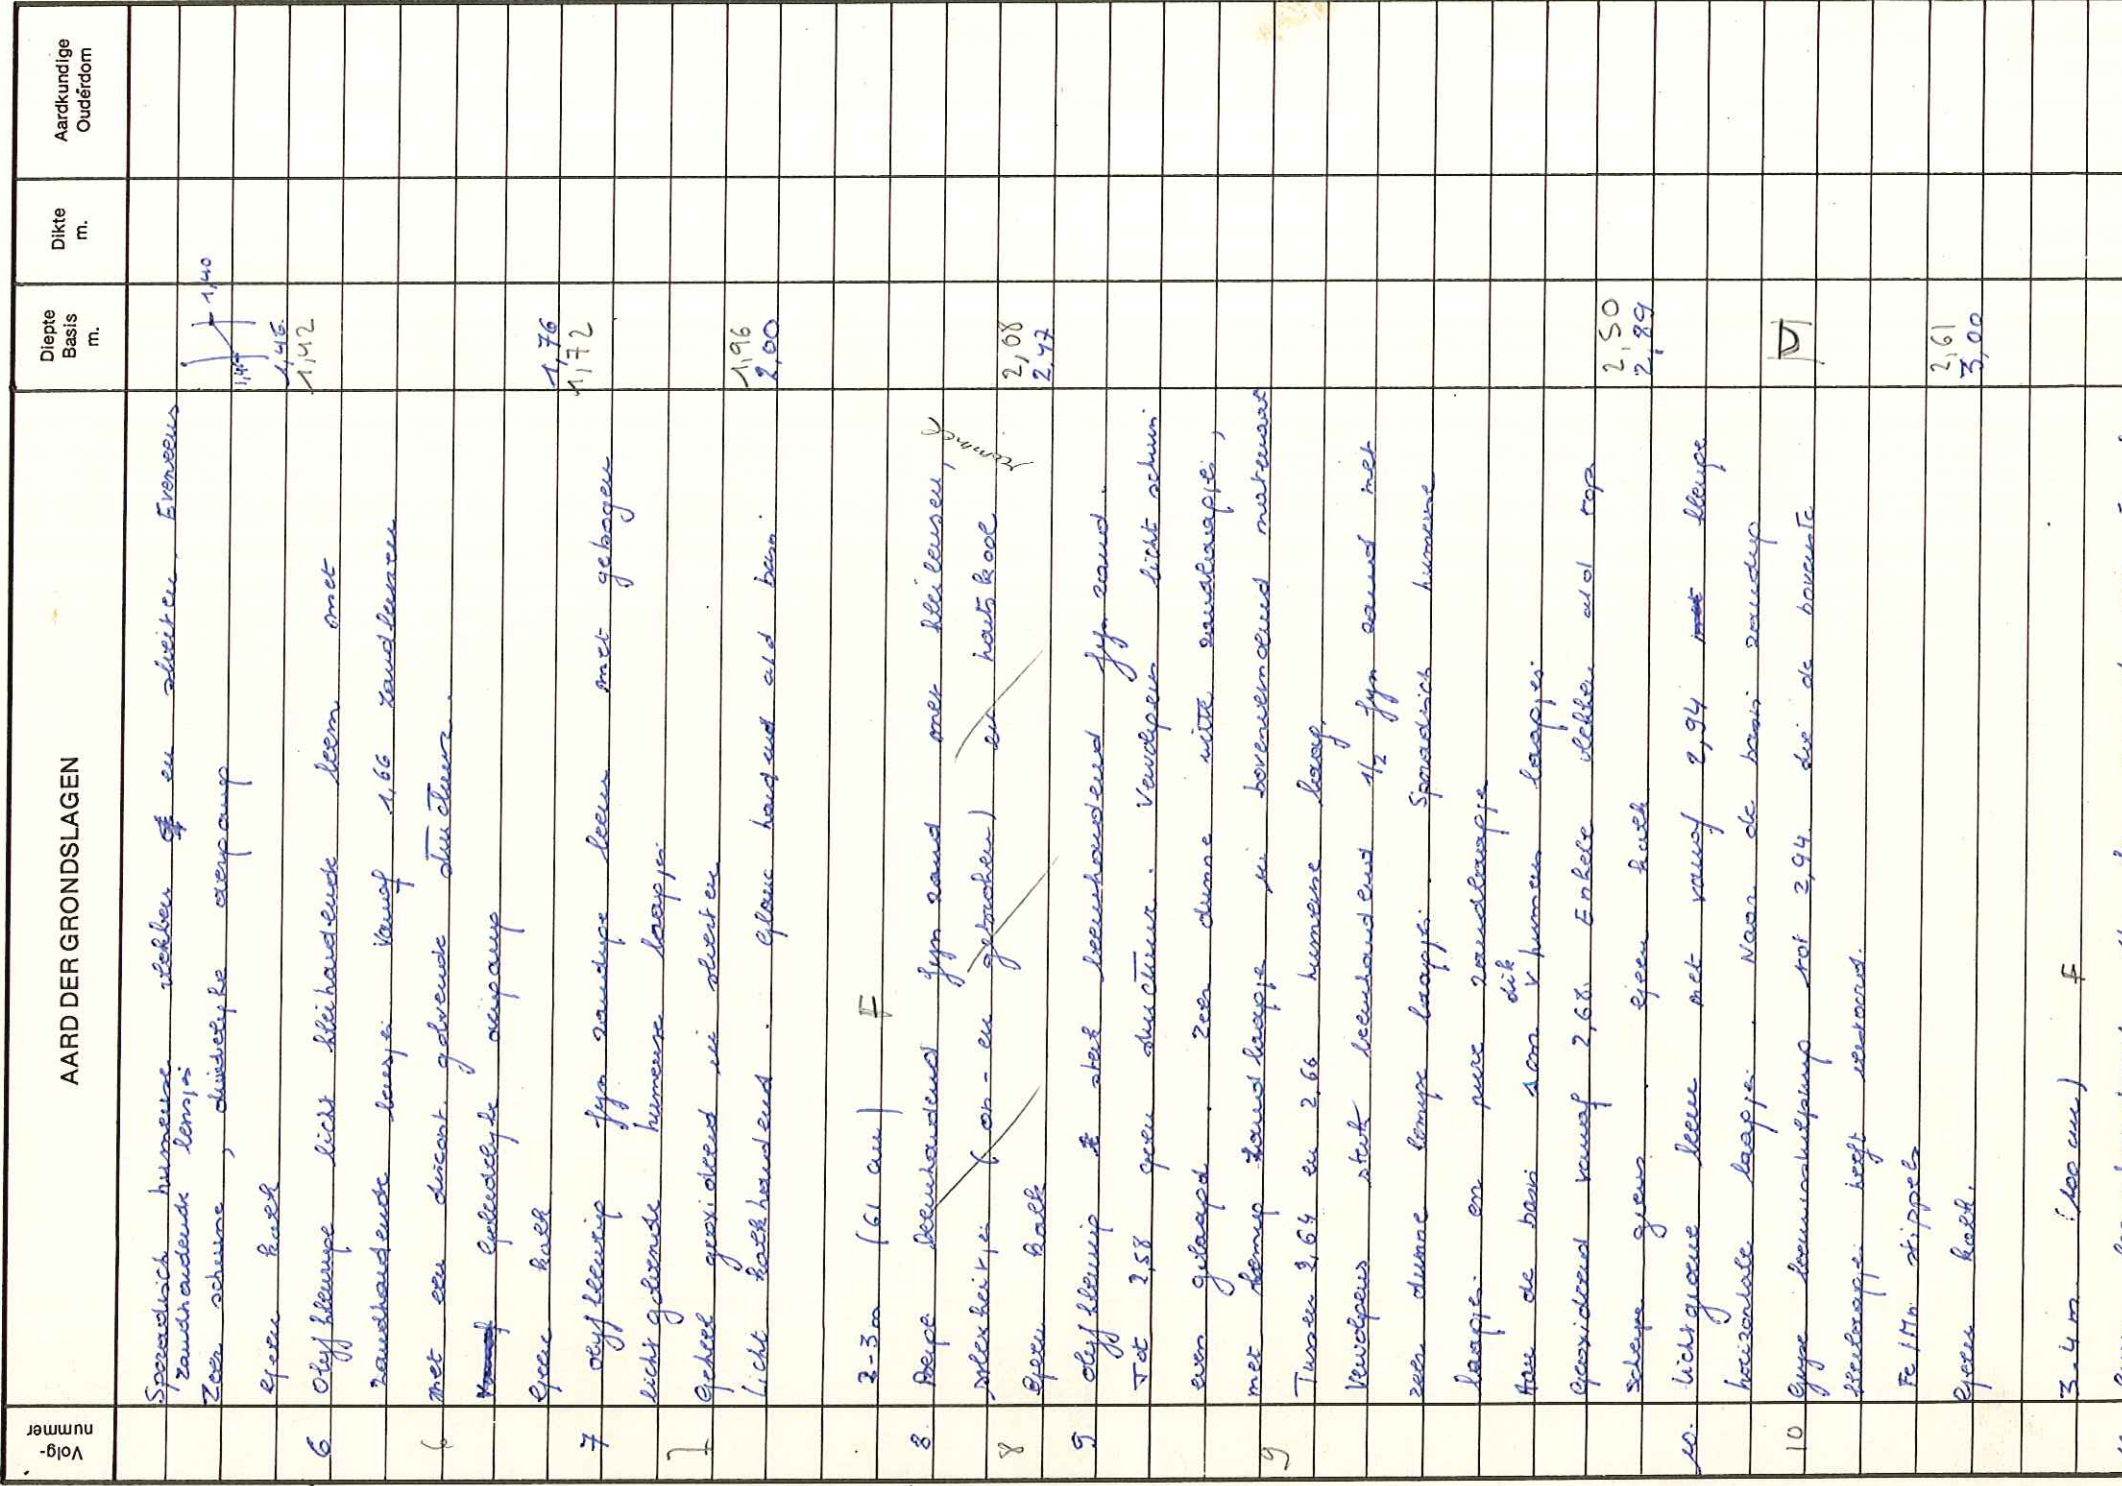 Volg-nummer
AARD DER GRONDSLAGEN
Diepte Basis m.
Dikte m.
Aardkundige Ouderdom
Sporadisch humeuse vlekken en slierten. Eveneens
zandhoudende lensjes
Zeer scheve, duidelyke overgang
1,40
Geen kalk
1,46.
1,42
6 Olyfkleurige licht kleihoudende leem met
zandhoudende lensjes. Vanaf 1,66 zandlenzen
6 met een discont. golvende structuur.
Geleidelyk overgang
Geen kalk
1,76
1,72
7 Olyfkleurig fyn zandige leem met gebogen
licht golvende humeuse laagjes.
7 Geheel geoxideerd in slierten
Licht kalkhoudend. Glauc houdend ald basis
1,96
2,00
2-3m (61 cm) F
8. Beige leemhoudend fyn zand met kleilenzen,
8 molenkeitjes (on- en gebroken) en houtskool
Geen kalk
2,08
2,47
9 Olyfkleurig sterk leemhoudend fyn zand.
Tot 2,58 geen structuur. Vervolgens licht schuin
even gelaagd. Zeer dunne witte zandlaagjes,
9 met lemig zandlaagje in bovenvermeld materiaal
Tussen 2,64 en 2,66 humeuse laag.
Vervolgens sterk leemhoudend 1/2 fyn zand met
zeer dunne lemige laagjes. Sporadisch humeuse
laagjes en pure zandlaagje
dik
Aan de basis 1 cm v humeus laagjes
Geoxideerd vanaf 2,68. Enkele vlekken ald top
2,50
2,89
Scheve grens. Geen kalk
10. Lichtgroene leem met vanaf 2,94 kleiige
horizontale laagjes. Naar de basis zandig
10 Gryze leeminschuiving tot 2,94 die de bovenste
kleilaagjes heeft verstoord.
Fe/Mn stippels
2,61
3,00
Geen kalk.
3-4m (100 cm) F